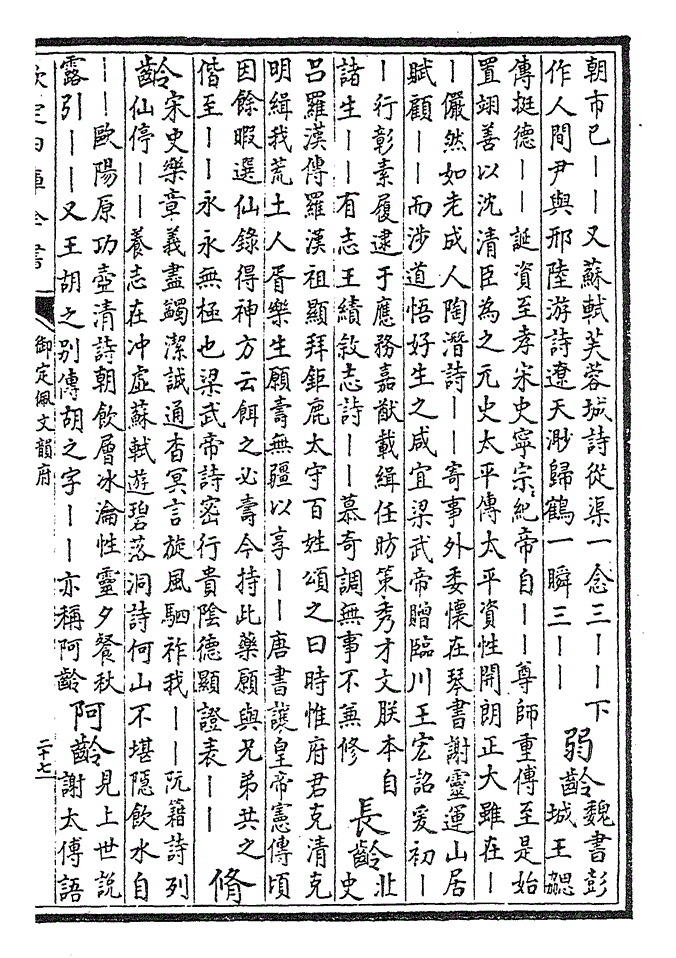 朝市已——又蘇軾芙蓉城詩從渠一念三——下
作人間尹與邢陸游詩遼天渺歸鶴一瞬三——
弱齡
魏書彭
城王勰
傳挺德——誕資至孝宋史寧宗紀帝自——尊師重傅至是始
置翊善以沈清臣為之元史太平傳太平資性開朗正大雖在—
—儼然如老成人陶潛詩——寄事外委懷在琴書謝靈運山居
賦顧——而涉道悟好生之咸宜梁武帝贈臨川王宏詔爰初—
—行彰素履逮于應務嘉猷載緝任昉策秀才文朕本自
諸生——有志王績敘志詩——慕奇調無事不兼修
長齡
北
史
呂羅漢傳羅漢祖顯拜鉅鹿太守百姓頌之曰時惟府君克清克
明緝我荒土人胥樂生願壽無疆以享——唐書讓皇帝憲傳頃
因餘暇選仙錄得神方云餌之必壽今持此藥願與兄弟共之
偕至——永永無極也梁武帝詩密行貴陰德顯證表——
脩
齡
宋史樂章義盡蠲潔誠通杳冥言旋風駟祚我——阮籍詩列
仙停——養志在冲虛蘇軾遊碧落洞詩何山不堪隱飲水自
——歐陽原功壺清詩朝飲層冰瀹性靈夕餐秋
露引——又王胡之别傳胡之字——亦稱阿齡
阿齡
見上世說
謝太傅語
欽定四庫全書
御定佩文韻府
二十七